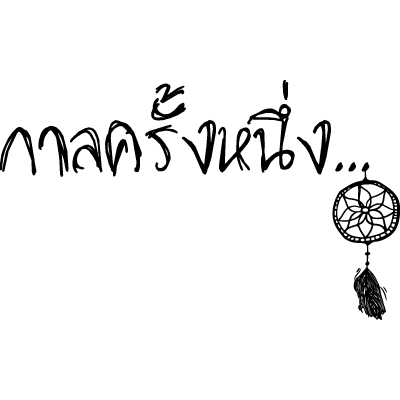 กาลครั้งหนึ่ง...